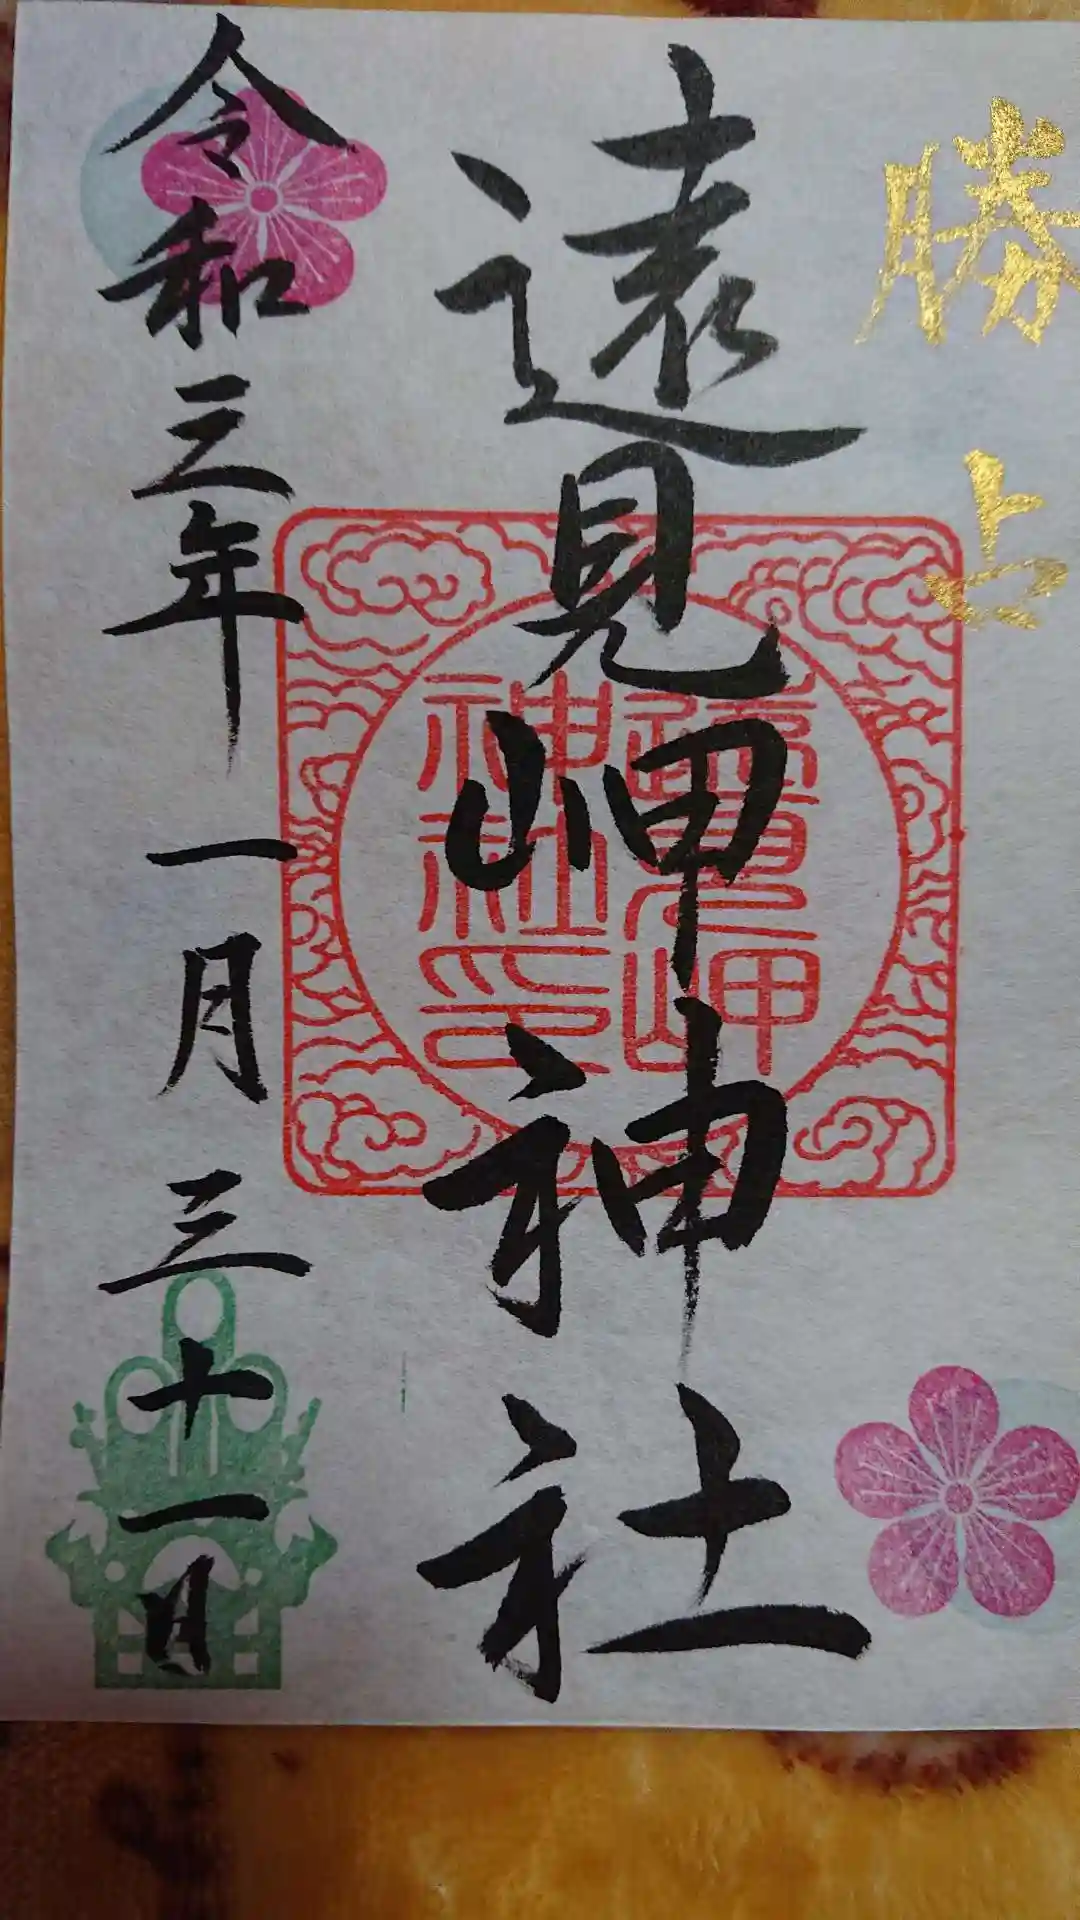 勝占
遠見岬神社
令和三年一月三十一日
遠見岬
神社印